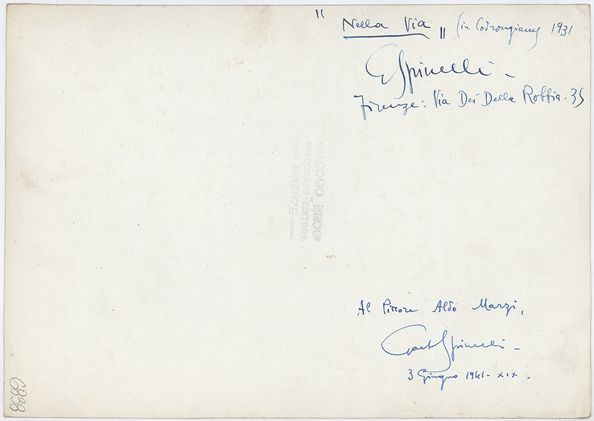 " Nella Via " (in Codrongianus 1931
G Spinelli -
Firenze: Via Dei Della Robbia. 35
GIACOMO BROGI
FOTOGRAFO-EDITORE
FIRENZE
Al Pittore Aldo Marzi,
Spinelli -
3 Giugno 1941 - XIX.
6838